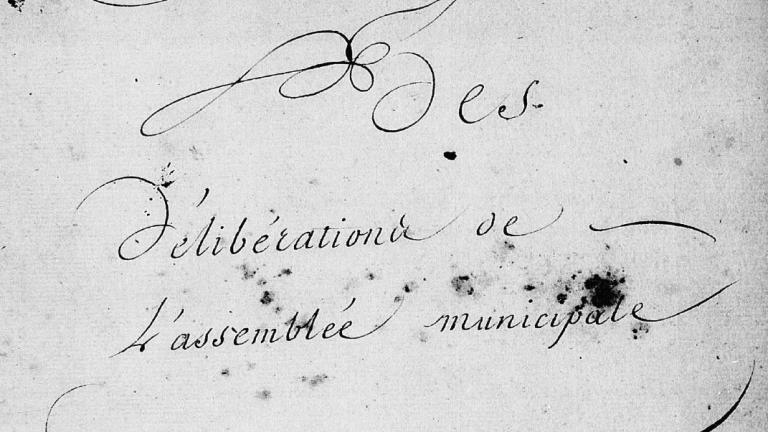 Des
Délibérations de
L'assemblée municipale